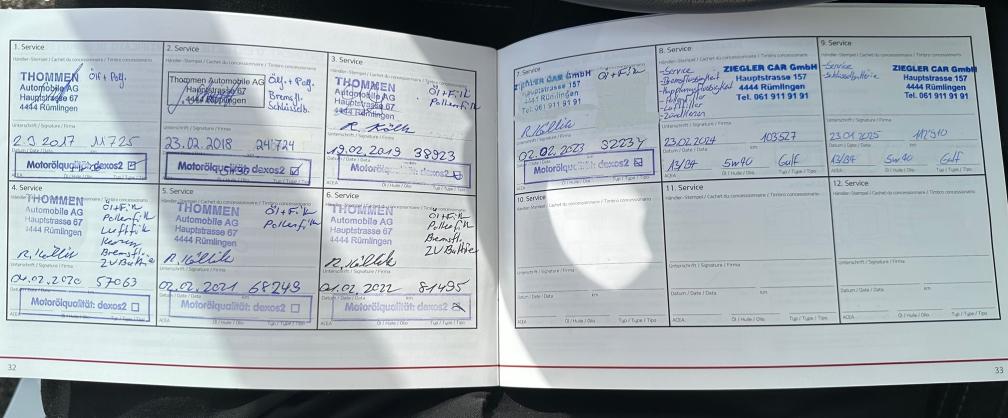 1. Service
Händler-Stempel / Cachet du concessionnaire / Timbro concessionario
THOMMEN
Automobile AG
Hauptstrasse 67
4444 Rümlingen
Öl + Poll.
Unterschrift / Signature / Firma
2.9.2017 11'725
Motorölqualität: dexos2
2. Service
Händler-Stempel / Cachet du concessionnaire / Timbro concessionario
Thommen Automobile AG
Hauptstrasse 67
4444 Rümlingen
Öl + Poll.
Bremsfl.
Schlüsselb.
Unterschrift / Signature / Firma
23.02.2018 24'724
Motorölqualität: dexos2
3. Service
Händler-Stempel / Cachet du concessionnaire / Timbro concessionario
THOMMEN
Automobile AG
Hauptstrasse 67
4444 Rümlingen
Öl + Filt
Pollenfilt
Unterschrift / Signature / Firma
19.02.2019 38923
Motorölqualität: dexos2
4. Service
THOMMEN
Automobile AG
Hauptstrasse 67
4444 Rümlingen
Öl + Filt
Pollenfilt
Luftfilt
Kerzen
Bremsfl.
ZV Battrie
Unterschrift / Signature / Firma
04.02.2020 57063
Datum / Date / Data km
Motorölqualität: dexos2
ACEA Öl / Huile / Olio Typ / Type / Tipo
5. Service
THOMMEN
Automobile AG
Hauptstrasse 67
4444 Rümlingen
Öl + Filt
Pollenfilt
Unterschrift / Signature / Firma
02.02.2021 68249
Datum / Date / Data
Motorölqualität: dexos2
ACEA Öl / Huile / Olio Typ / Type / Tipo
6. Service
THOMMEN
Automobile AG
Hauptstrasse 67
4444 Rümlingen
Öl + Filt
Pollenfilt
Bremsfl.
ZV Battrie
Unterschrift / Signature / Firma
01.02.2022 81495
Datum / Date / Data
Motorölqualität: dexos2
ACEA Öl / Huile / Olio Typ / Type / Tipo
32
7. Service
ZIEGLER CAR GmbH
Hauptstrasse 157
4444 Rümlingen
Tel. 061 911 91 91
Öl + Filt
Unterschrift / Signature / Firma
02.02.2023
Motorölqualität: dexos2
ACEA Öl / Huile / Olio Typ / Type / Tipo
8. Service
Händler-Stempel / Cachet du concessionnaire / Timbro concessionario
ZIEGLER CAR GmbH
Hauptstrasse 157
4444 Rümlingen
Tel. 061 911 91 91
-Service
-Bremsflüssigkeit
-Luftfilter
-Zündkerzen
Unterschrift / Signature / Firma
23.02.2024 103527
5W40 Gulf
ACEA Öl / Huile / Olio Typ / Type / Tipo
9. Service
Händler-Stempel / Cachet du concessionnaire / Timbro concessionario
ZIEGLER CAR GmbH
Hauptstrasse 157
4444 Rümlingen
Tel. 061 911 91 91
-Service
-Schlüsselbatterie
Unterschrift / Signature / Firma
23.01.2025
5W40 Gulf
ACEA Öl / Huile / Olio Typ / Type / Tipo
10. Service
Händler-Stempel / Cachet du concessionnaire / Timbro concessionario
Unterschrift / Signature / Firma
Datum / Date / Data km
ACEA Öl / Huile / Olio Typ / Type / Tipo
11. Service
Händler-Stempel / Cachet du concessionnaire / Timbro concessionario
Unterschrift / Signature / Firma
Datum / Date / Data km
ACEA Öl / Huile / Olio Typ / Type / Tipo
12. Service
Händler-Stempel / Cachet du concessionnaire / Timbro concessionario
Unterschrift / Signature / Firma
Datum / Date / Data km
ACEA Öl / Huile / Olio Typ / Type / Tipo
33